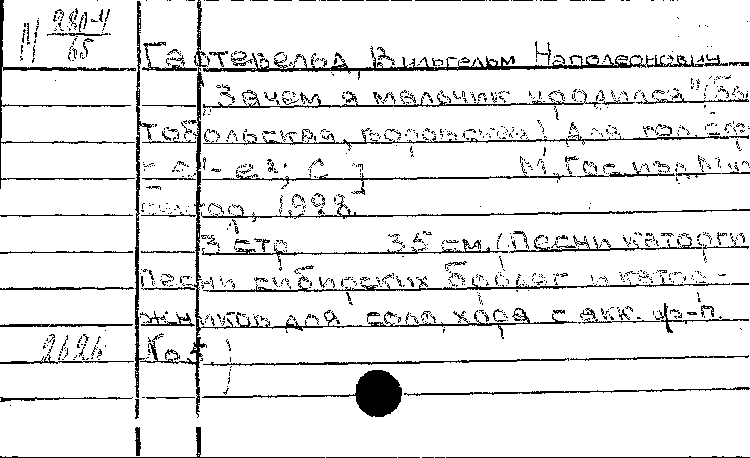 М 280-4/65
Гартевельд, Вильгельм Наполеонович
"Зачем я мальчик уродился" (Бы
Тобольская, воровская) Для гол. с фр
- c¹- e²; С ] М., Гос. изд. Муз
сектор, 1928.
3 стр. 35 см. (Песни каторги
Песни сибирских бродяг и катор-
жников для соло, хора с акк. ф.-п.
2626 No.5)